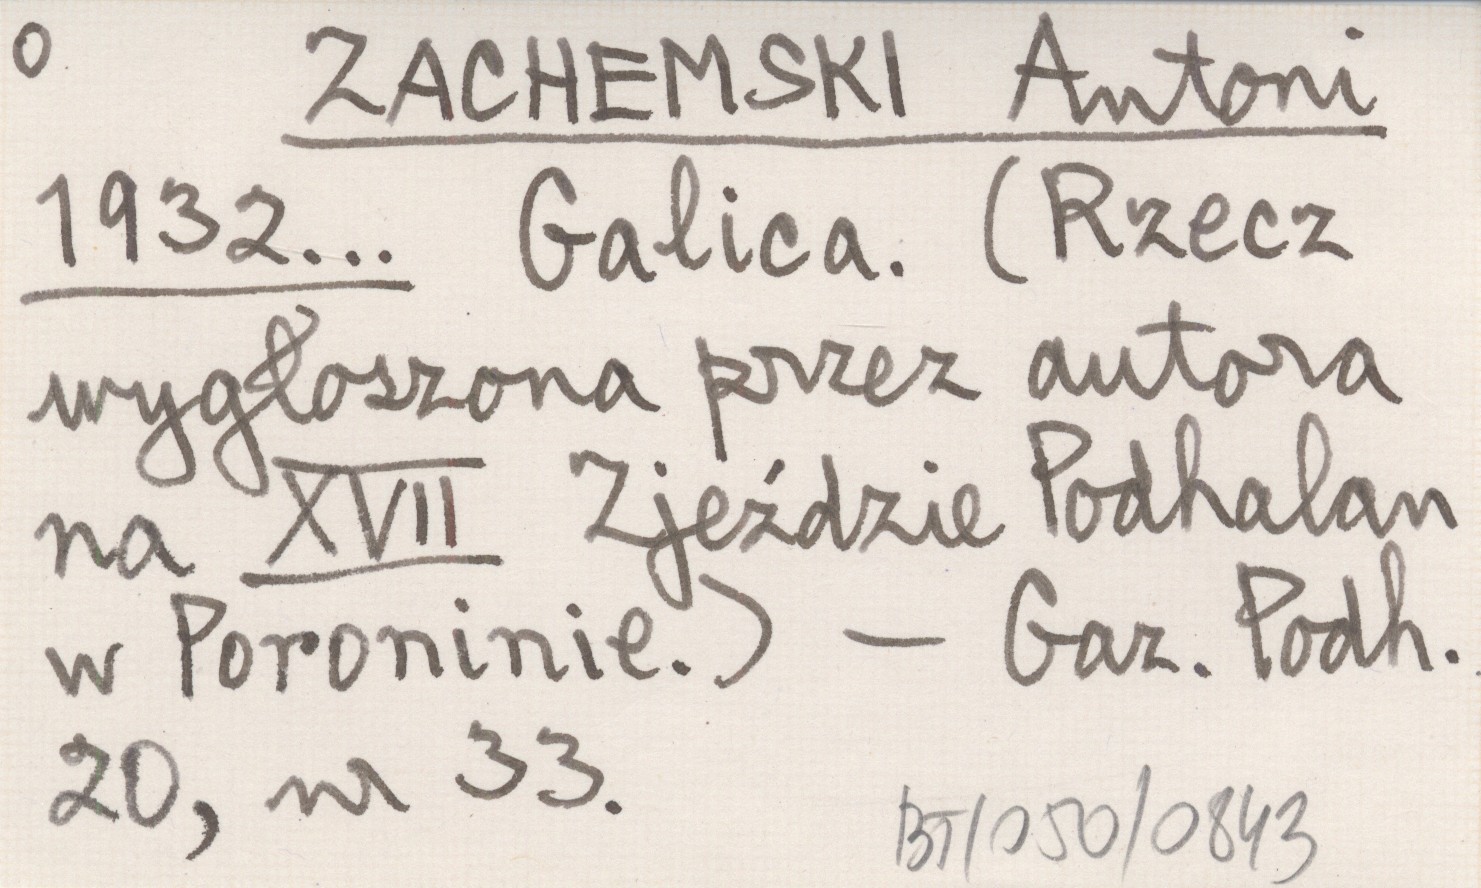 o ZACHEMSKI Antoni
1932... Galica. (Rzecz
wygłoszona przez autora
na XVII Zjeździe Podhalan
w Poroninie.) — Gaz. Podh.
20, nr 33.
BT/050/0843